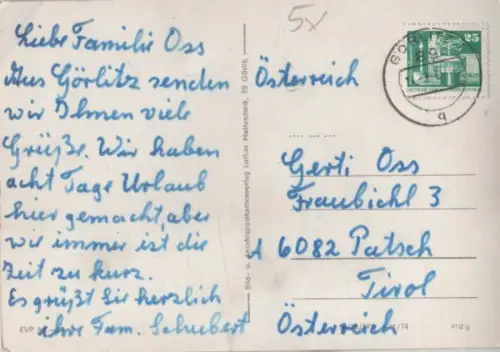 Liebe Familie Oss
Aus Görlitz senden
wir Ihnen viele
Grüße. Wir haben
acht Tage Urlaub
hier gemacht, aber
wie immer ist die
Zeit zu kurz.
Es grüßt Sie herzlich
ihre Fam. Schubert
EVP
5x
Österreich
GÖR
25
q
Gerti Oss
Fraubichl 3
A 6082 Patsch
Tirol
Österreich